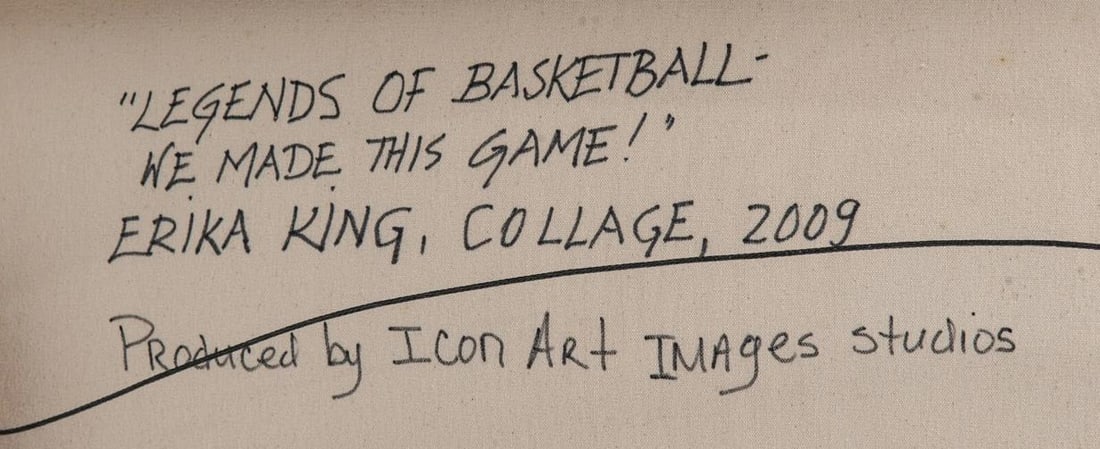 "LEGENDS OF BASKETBALL-
WE MADE THIS GAME!"
ERIKA KING, COLLAGE, 2009
Produced by Icon Art IMAges studios